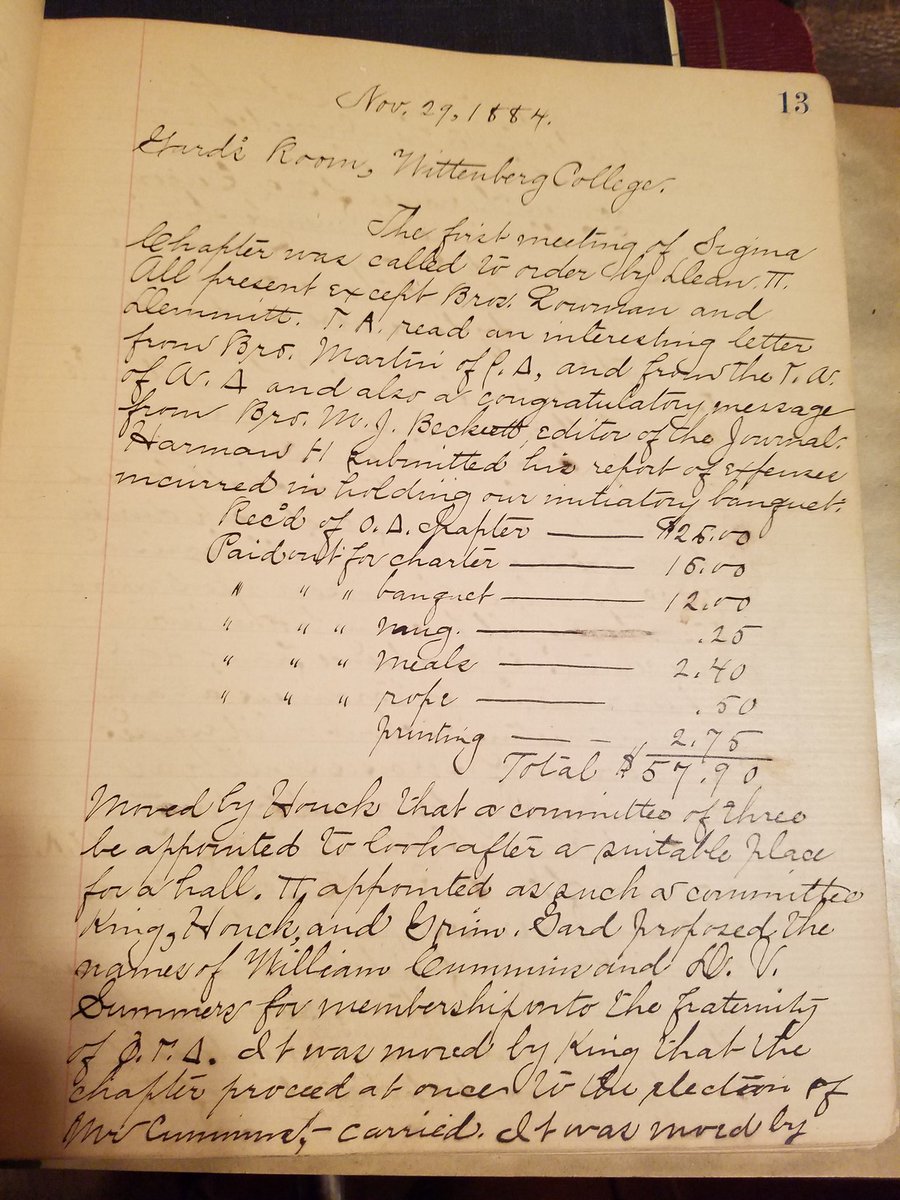 13
Nov. 29, 1884.
Gard's Room, Wittenberg College.
The first meeting of Sigma
Chapter was called to order by Dean. Π.
All present except Bros. Lowman and
Demmitt. T. A. read an interesting letter
from Bro. Martin of Δ, and from the T. A.
of Δ and also a congratulatory message
from Bro. M. J. Beckett, editor of the Journal.
Harman H submitted his report of expenses
incurred in holding our initiatory banquet:
Rec'd of O. Δ. Chapter — $25.00
Paid out for charter — 15.00
" " " banquet — 12.00
" " " mug. — .25
" " " meals — 2.40
" " " rope — .50
printing — — 2.75
Total $57.90
Moved by Houck that a committee of three
be appointed to look after a suitable place
for a hall. Π, appointed as such a committee
King, Houck, and Grim. Gard proposed the
names of William Cummins and D. V.
Summers for membership into the fraternity
of Φ. Γ. Δ. It was moved by King that the
chapter proceed at once to the election of
Mr Cummins, – carried. It was moved by